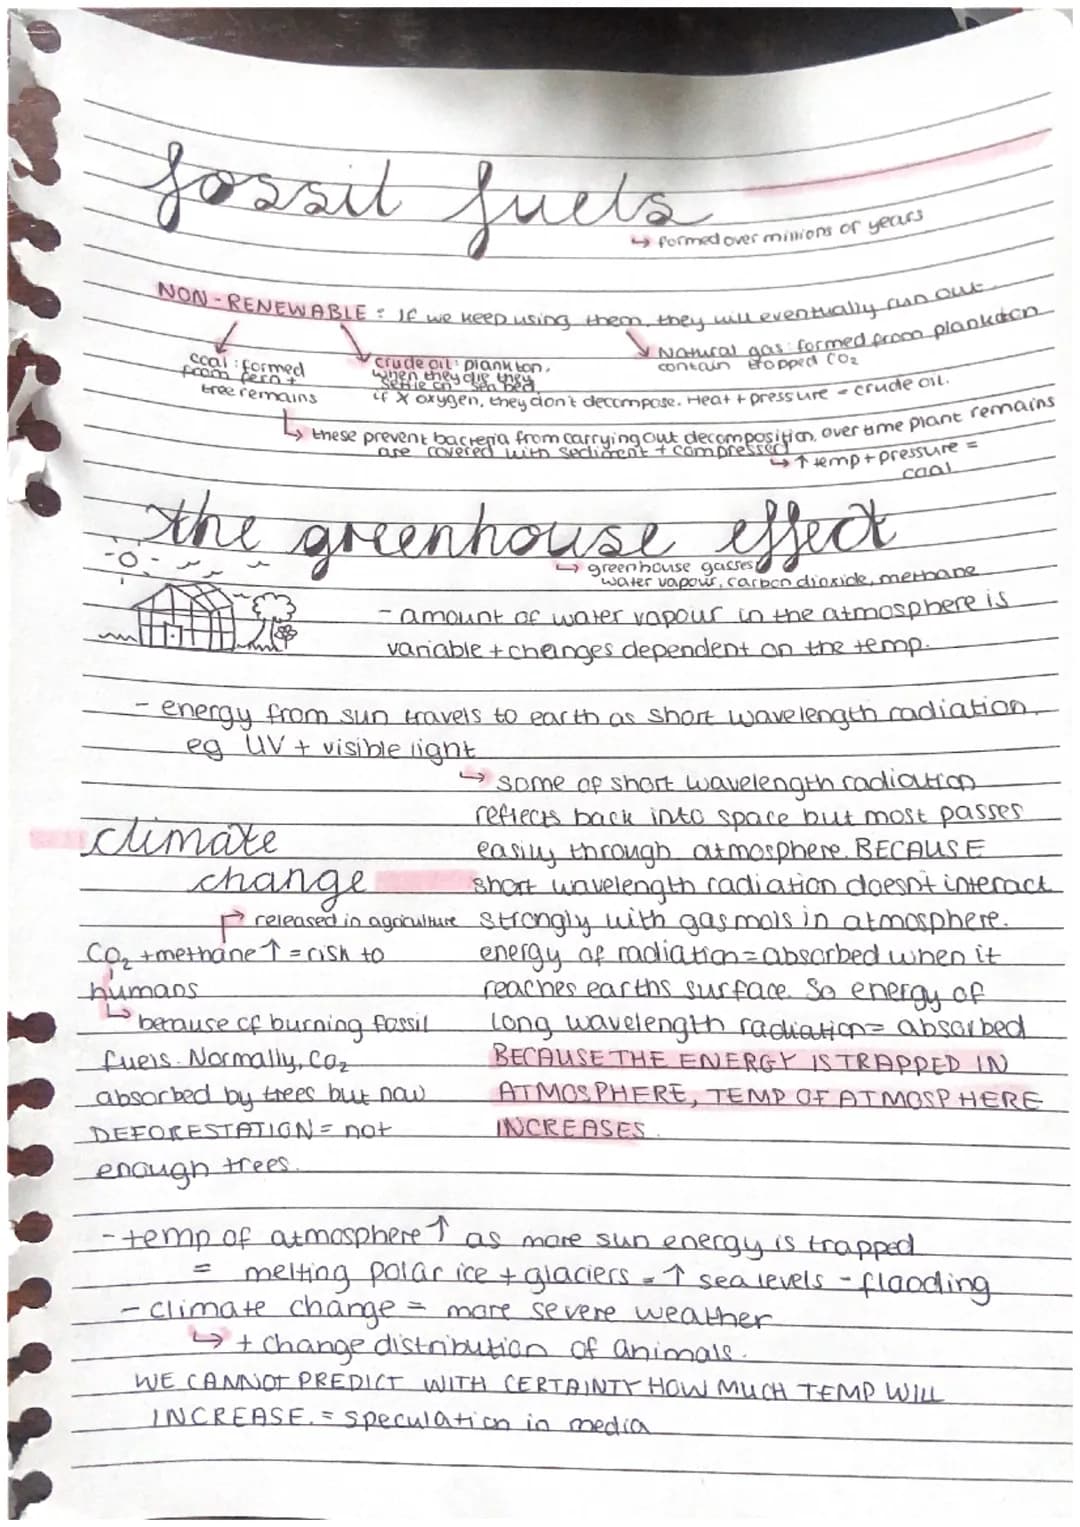 fossil fuels
↳ formed over millions of years
NON-RENEWABLE : If we keep using them, they will eventually run out
coal : formed
from fern +
tree remains
crude oil : plankton,
when they die they
settle on sea bed
if X oxygen, they don't decompose. Heat + pressure = crude oil.
Natural gas : formed from plankton
contain trapped CO2
↳ these prevent bacteria from carrying out decomposition, over time plant remains
are covered with sediment + compressed
↳ ↑ temp + pressure =
coal
the greenhouse effect
↳ greenhouse gasses
water vapour, carbon dioxide, methane
- amount of water vapour in the atmosphere is
variable + changes dependent on the temp.
- energy from sun travels to earth as short wavelength radiation
eg UV + visible light
↳ some of short wavelength radiation
reflects back into space but most passes
easily through atmosphere. BECAUSE
short wavelength radiation doesn't interact
strongly with gas mols in atmosphere.
energy of radiation = absorbed when it
reaches earths surface. So energy of
long wavelength radiation = absorbed
BECAUSE THE ENERGY IS TRAPPED IN
ATMOSPHERE, TEMP OF ATMOSPHERE
INCREASES.
climate
change
released in agriculture
CO2 + methane ↑ = risk to
humans
↳ because of burning fossil
fuels. Normally, CO2
absorbed by trees but now
DEFORESTATION = not
enough trees.
- temp of atmosphere ↑ as more sun energy is trapped
= melting polar ice + glaciers = ↑ sea levels - flooding
- climate change = more severe weather
↳ + change distribution of animals.
WE CANNOT PREDICT WITH CERTAINTY HOW MUCH TEMP WILL
INCREASE. = speculation in media